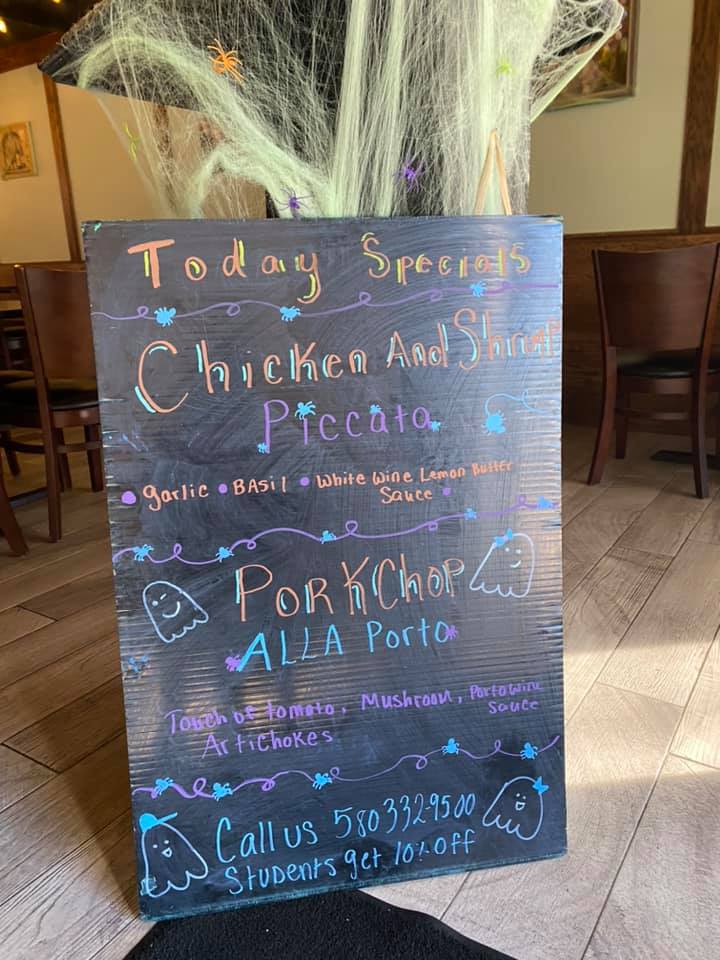 Today Specials
Chicken And Shrimp
Piccata
• garlic • BASil • White Wine Lemon Butter
Sauce •
PORK CHOP
ALLA Porto
Touch of tomato, Mushroom, Porto Wine
Sauce
Artichokes
Call us 580 332-9500
Students get 10% off